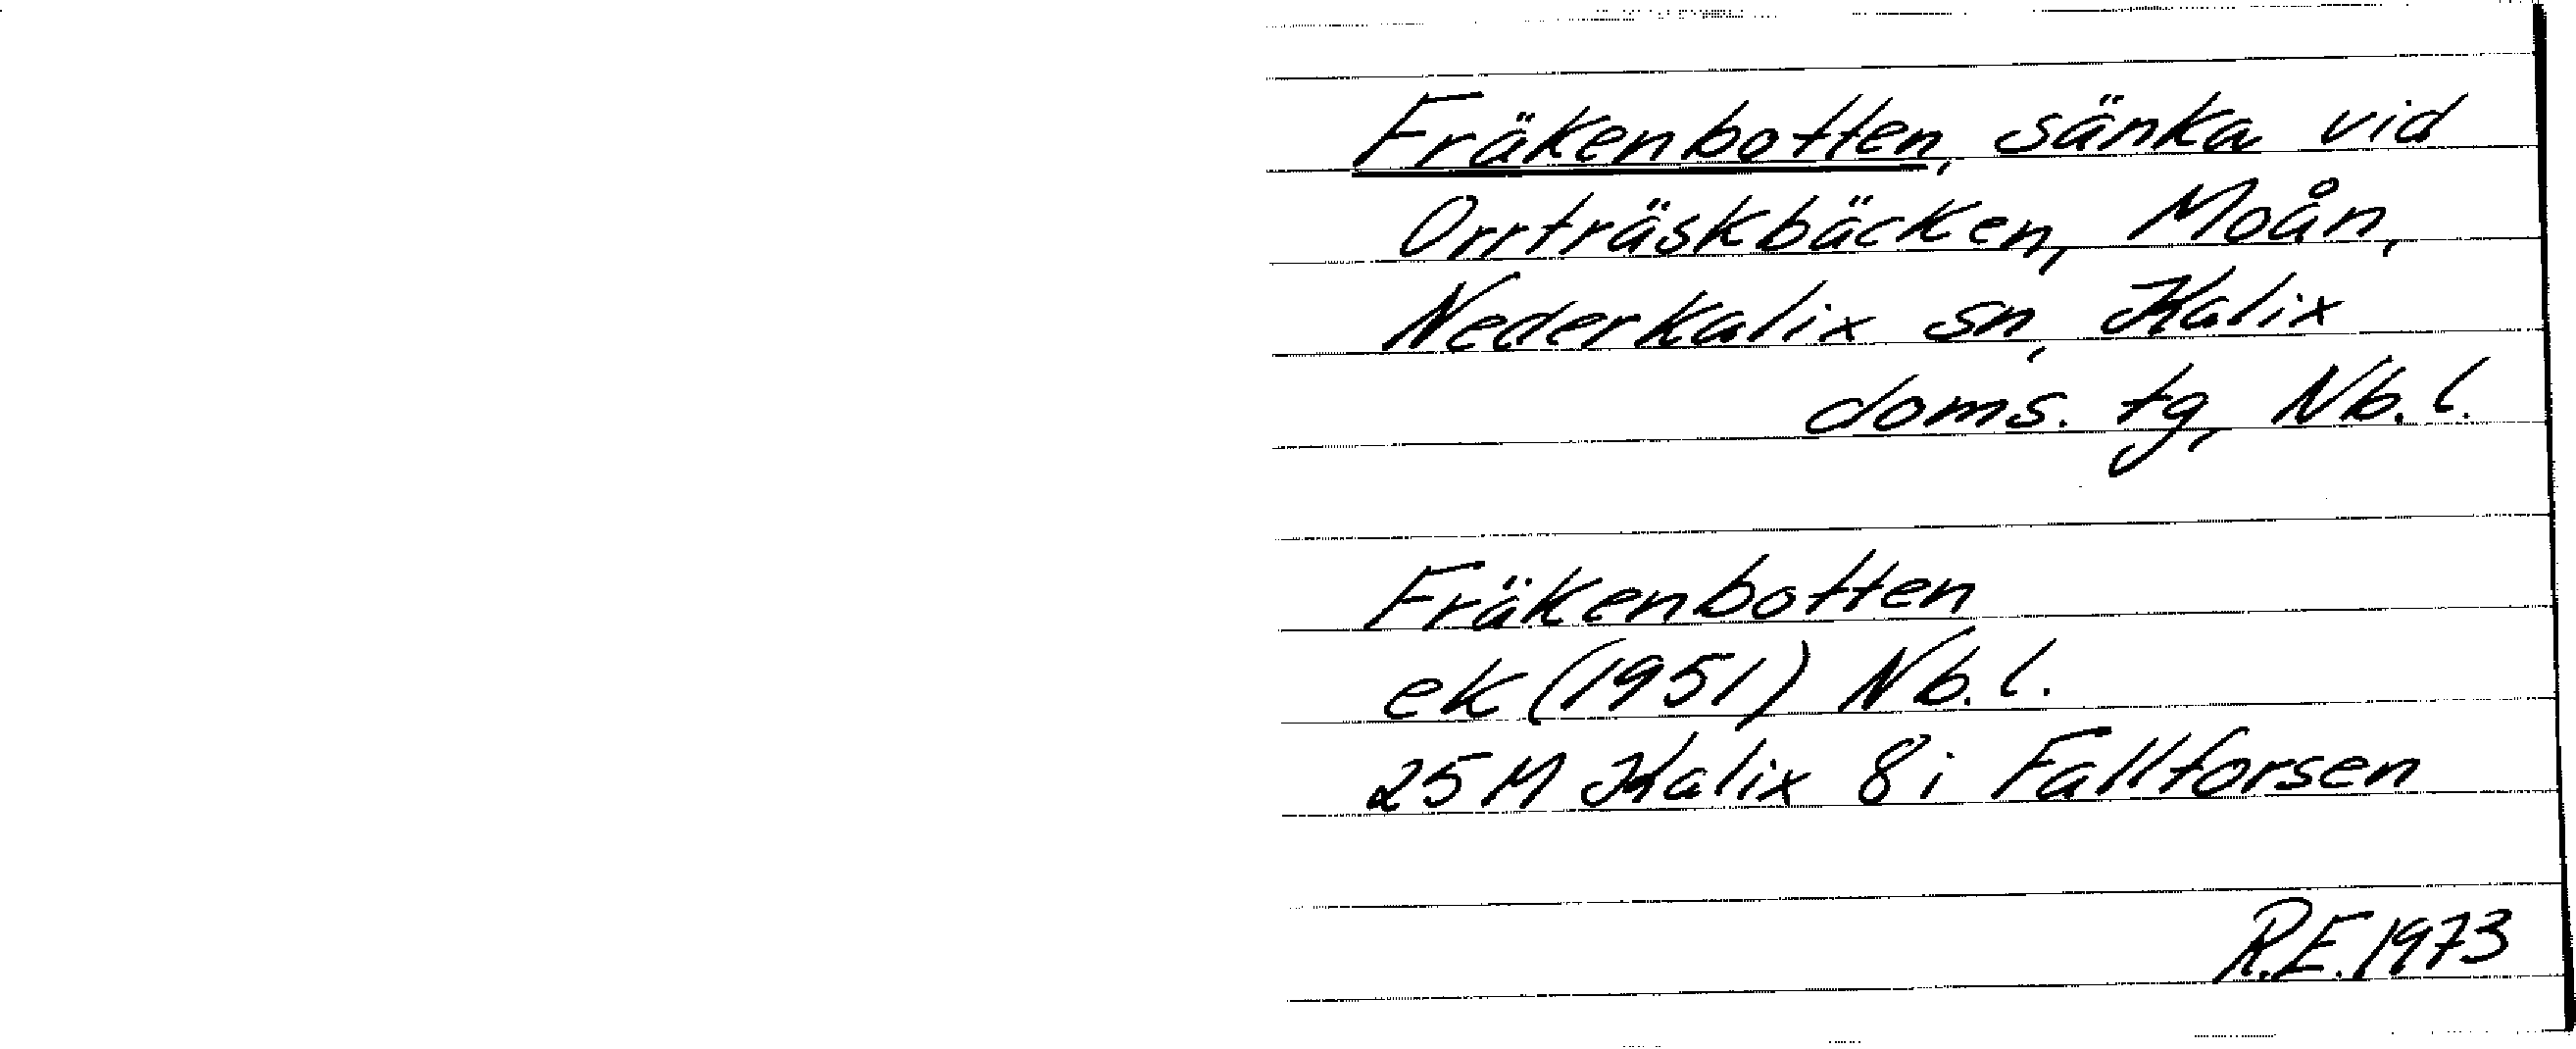 Fräkenbotten, sänka vid
Orrträskbäcken, Moån,
Nederkalix sn, Kalix
doms. tg, Nb. l.
Fräkenbotten
ek (1951) Nb. l.
25 M Kalix 8 i Fallforsen
R.E. 1973